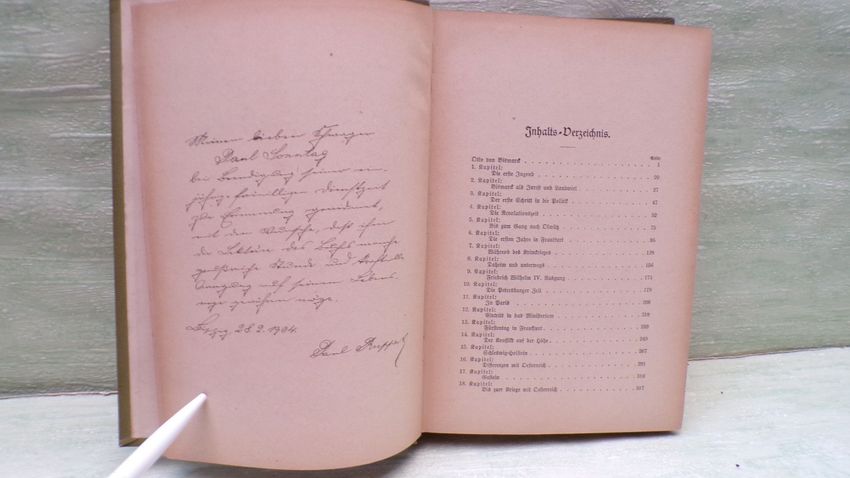 Meinem lieben Schwager
Paul Sonntag
bei Beendigung seiner ein-
jährig-freiwilligen Dienstzeit
zur Erinnerung gewidmet,
mit dem Wunsche, daß ihm
die Lektüre des Buches manche
Stunde und
auf seinem Lebens
möge.
Leipzig 28.9.1904.
Paul
Inhalts-Verzeichnis.
Seite
Otto von Bismarck 1
1. Kapitel:
Die erste Jugend 20
2. Kapitel:
Bismarck als Jurist und Landwirt 27
3. Kapitel:
Der erste Schritt in die Politik 47
4. Kapitel:
Die Revolutionszeit 52
5. Kapitel:
Bis zum Gang nach Olmütz 75
6. Kapitel:
Die ersten Jahre in Frankfurt 95
7. Kapitel:
Während des Krimkrieges
8. Kapitel:
Daheim und unterwegs
9. Kapitel:
Friedrich Wilhelm IV. Ausgang
10. Kapitel:
Die Petersburger Zeit
11. Kapitel:
In Paris
12. Kapitel:
Eintritt in das Ministerium
13. Kapitel:
Fürstentag in Frankfurt
14. Kapitel:
Der Konflikt auf der Höhe
15. Kapitel:
Schleswig-Holstein 267
16. Kapitel:
Differenzen mit Oesterreich 291
17. Kapitel:
Gastein
18. Kapitel:
Bis zum Kriege mit Oesterreich 317